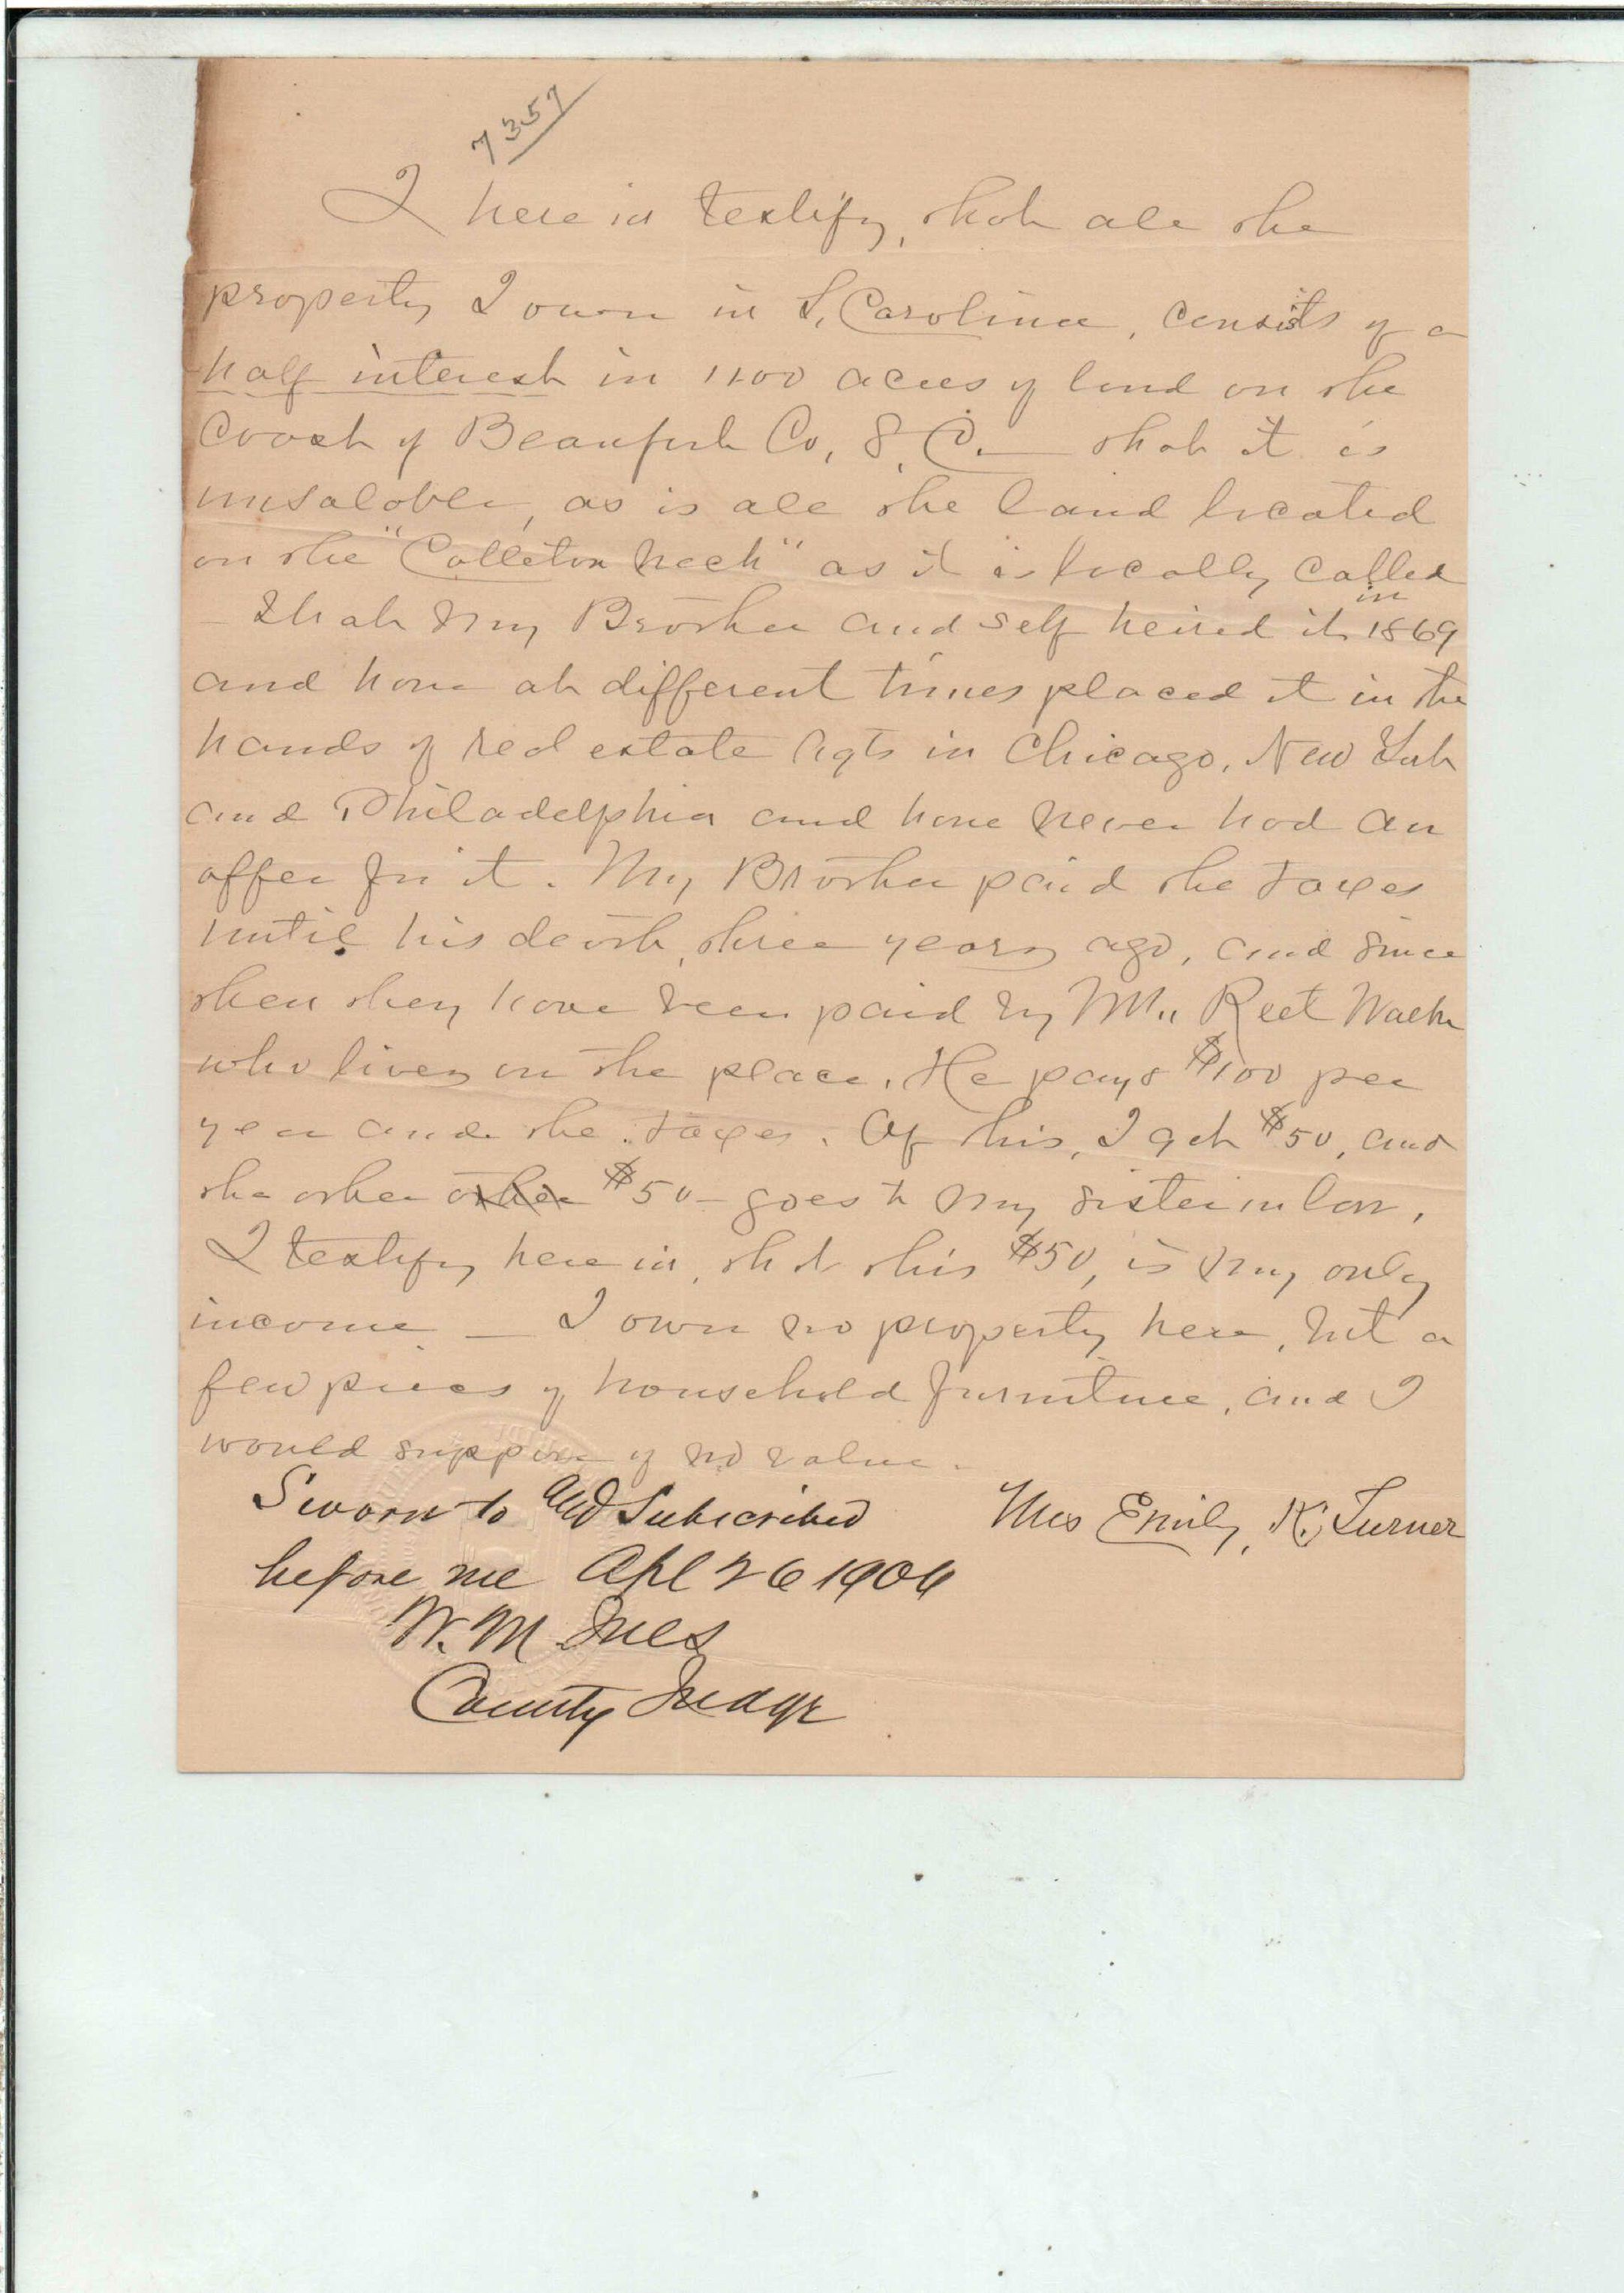 7357
I here in testify, that all the
property I own in S. Carolina, consists of a
half interest in 1100 acres of land on the
Coast of Beaufort Co, S. C. — that it is
unsalable, as is all the land located
on the "Colleton Neck" as it is locally called
— that my Brother and self heired it in 1869
and have at different times placed it in the
hands of real estate Agts in Chicago, New York
and Philadelphia and have never had an
offer for it. My Brother paid the taxes
until his death, three years ago, and since
then they have been paid by Mr.
who lives on the place. He pays $100 per
year and the taxes. Of this, I get $50, and
the other other $50 — goes to my sister in law.
I testify here in, that this $50, is my only
income — I own no property here, but a
few pieces of household furniture, and I
would suppose of no value.
Sworn to and Subscribed Mrs Emily K. Turner
before me Apl 26 1906
W. M. Ives
County Judge